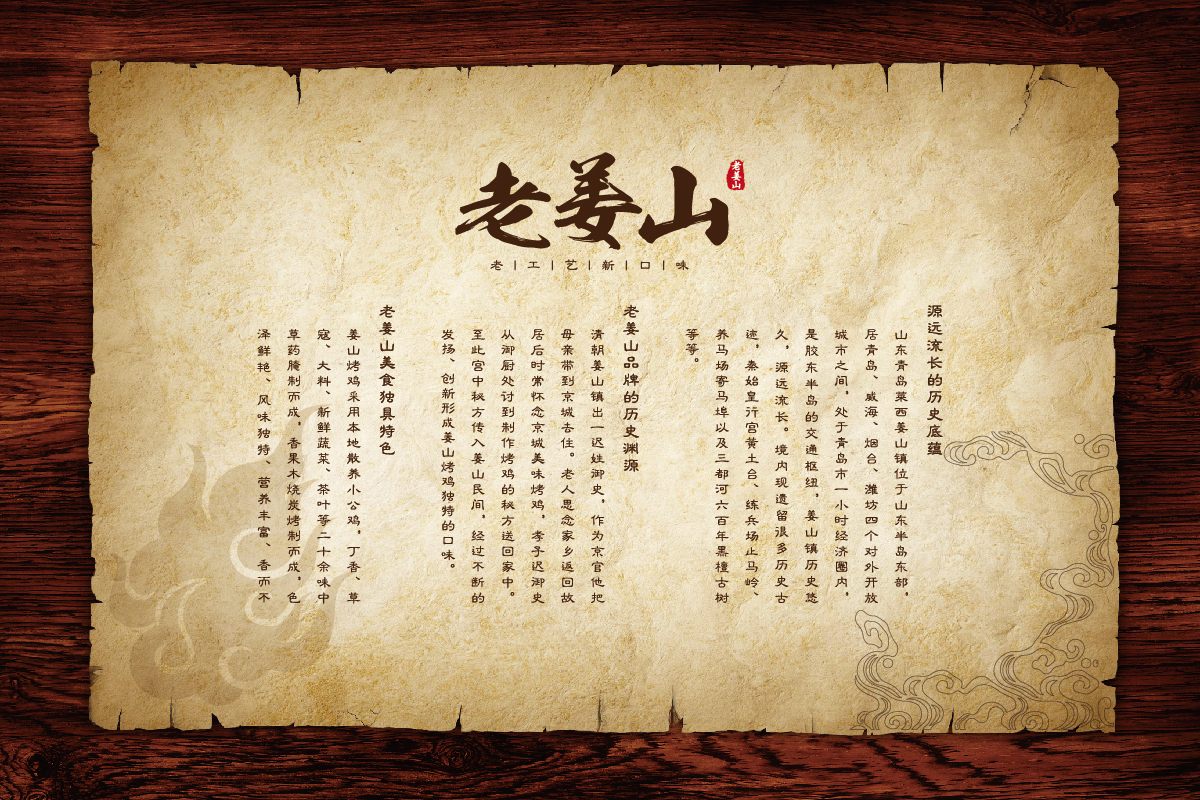 老姜山
老姜山
老|工|艺|新|口|味
源远流长的历史底蕴
山东青岛莱西姜山镇位于山东半岛东部，
居青岛、威海、烟台、潍坊四个对外开放
城市之间，处于青岛市一小时经济圈内，
是胶东半岛的交通枢纽，姜山镇历史悠
久，源远流长。境内现遗留很多历史古
迹，秦始皇行宫黄土台、练兵场止马岭、
养马场寄马埠以及三都河六百年黑檀古树
等等。
老姜山品牌的历史渊源
清朝姜山镇出一迟姓御史，作为京官他把
母亲带到京城去住。老人思念家乡返回故
居后时常怀念京城美味烤鸡，孝子迟御史
从御厨处讨到制作烤鸡的秘方送回家中。
至此宫中秘方传入姜山民间，经过不断的
发扬、创新形成姜山烤鸡独特的口味。
老姜山美食独具特色
姜山烤鸡采用本地散养小公鸡，丁香、草
寇、大料、新鲜蔬菜、茶叶等二十余味中
草药腌制而成，香果木烧炭烤制而成。色
泽鲜艳、风味独特、营养丰富、香而不